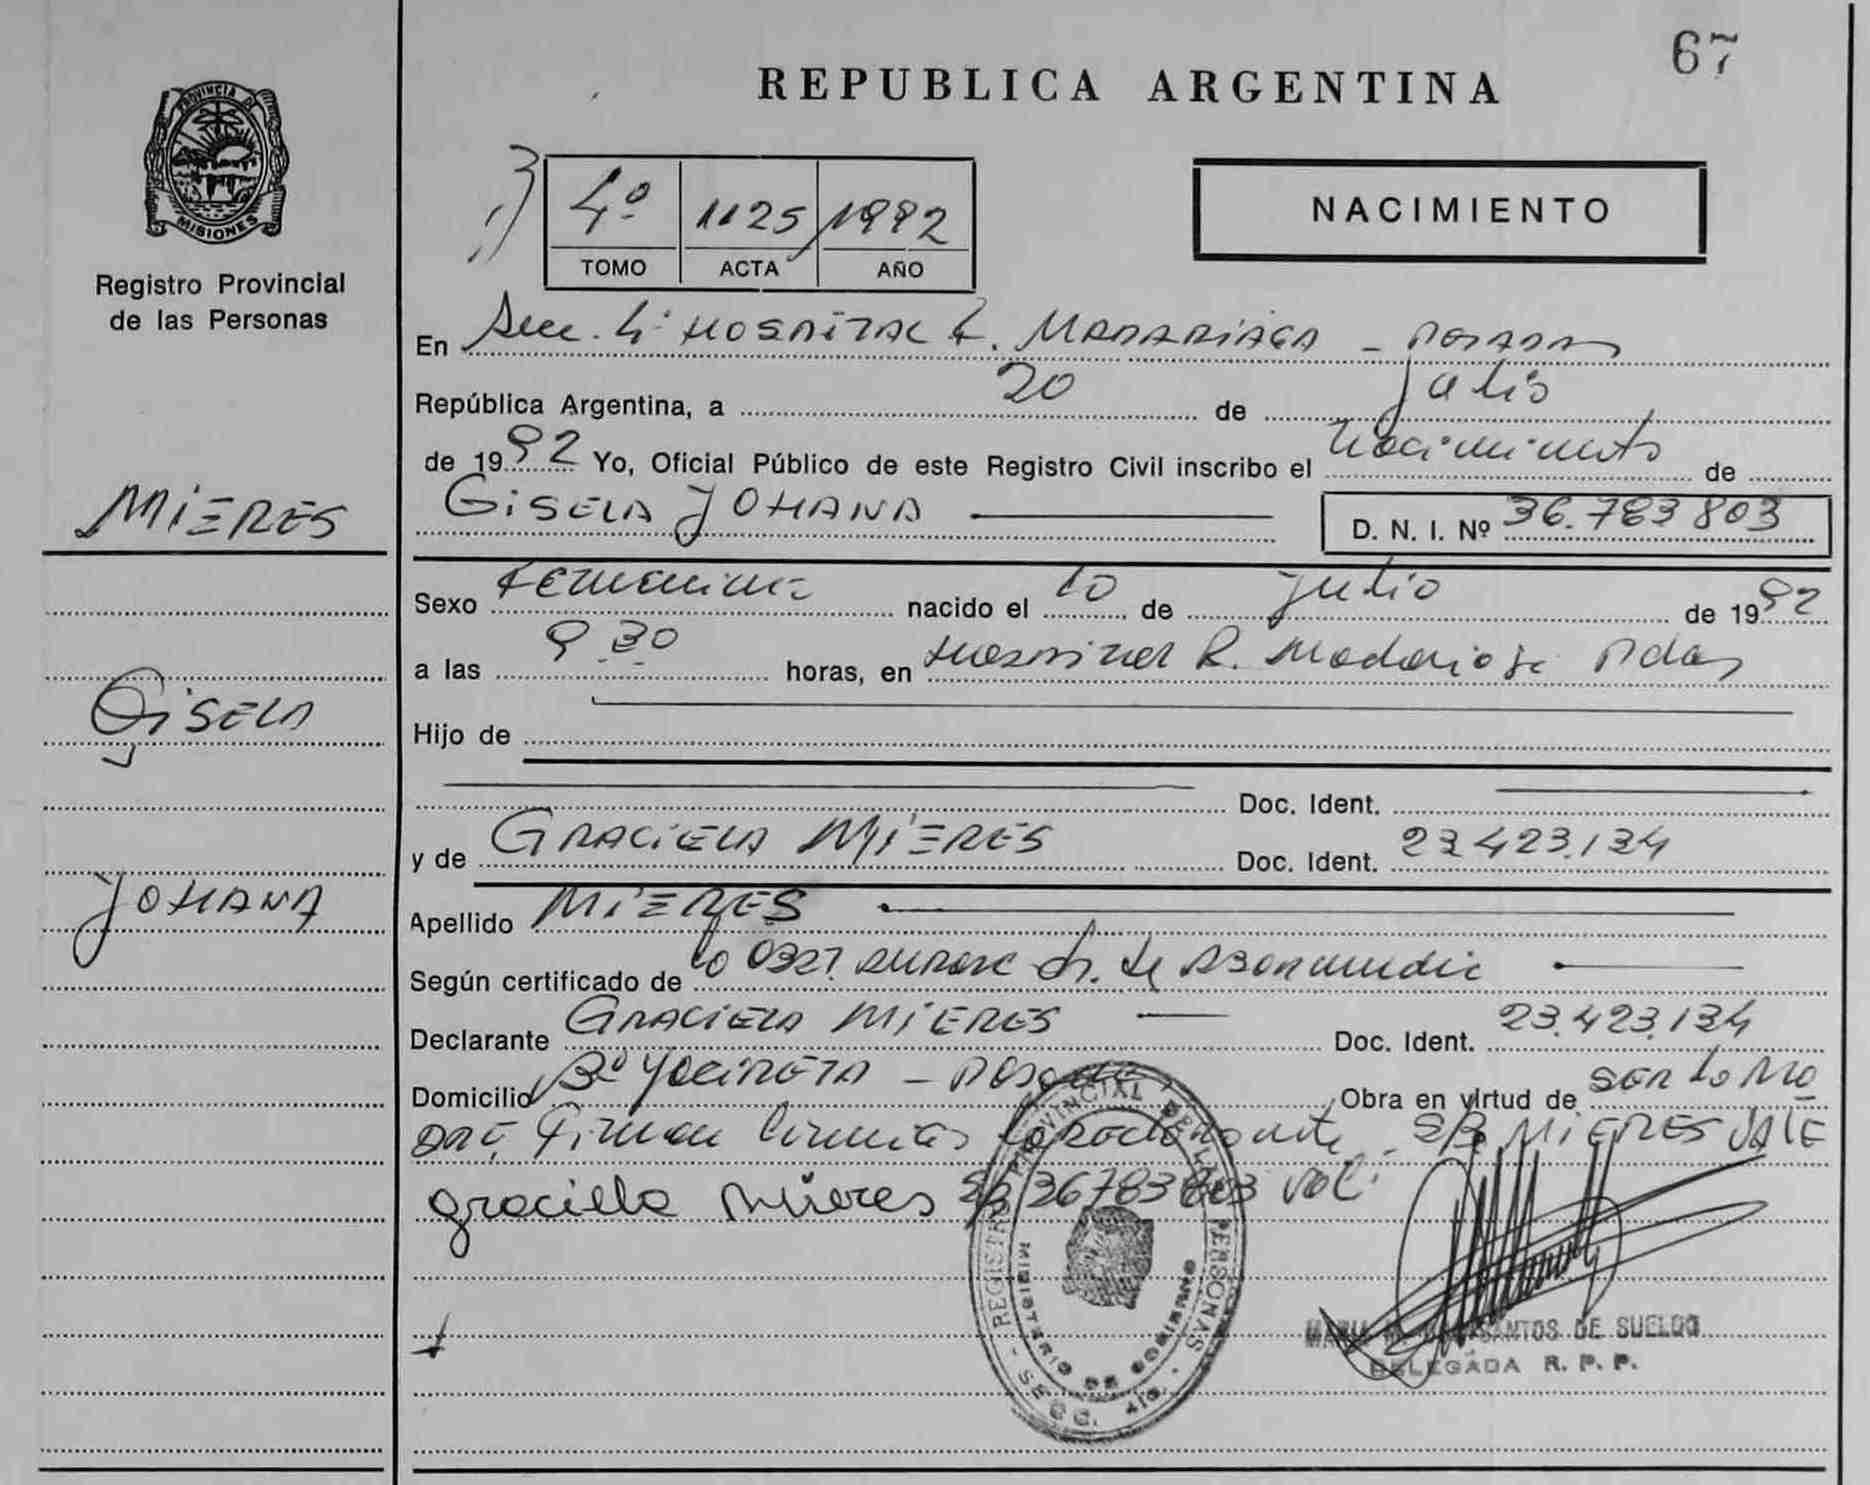 67
REPUBLICA ARGENTINA
PROVINCIA DE
MISIONES
Registro Provincial
de las Personas
4º 1125 1992
TOMO ACTA AÑO
NACIMIENTO
En Secc. 4ª HOSPITAL R. MADARIAGA - POSADAS
República Argentina, a 20 de Julio
de 1992 Yo, Oficial Público de este Registro Civil inscribo el Nacimiento de
GISELA JOHANA D. N. I. Nº 36.783 803
MIERES
GISELA
JOHANA
Sexo Femenino nacido el 10 de Julio de 1992
a las 9.30 horas, en Hospital R. Madariaga Pdas
Hijo de
Doc. Ident.
y de GRACIELA MIERES Doc. Ident. 23.423.134
Apellido MIERES
Según certificado de
Declarante GRACIELA MIERES Doc. Ident. 23.423.134
Domicilio Bº YACIRETA - Posadas Obra en virtud de ser la
Firman S/B MIERES VALE
graciella Mieres S/B 36783803 vale
REGISTRO PROVINCIAL DE LAS PERSONAS - SECC. 4ta.
MINISTERIO DE GOBIERNO
SANTOS DE SUELDO
DELEGADA R. P. P.